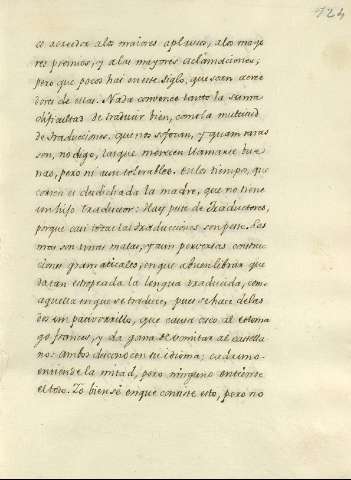 124
es acreedor a los maiores aplausos, a los mayo
res premios, y a las mayores aclamaciones;
pero que pocos hai en este siglo, que sean acree
dores de ellas. Nada convence tanto la suma
dificultad de traducir bien, como la multitud
de traducciones, que nos sofocan, y quan raras
son, no digo, las que merecen llamarse bue
nas, pero ni aun tolerables. En los tiempos, que
corren es dichada la madre, que no tiene
un hijo traductor: Hay peste de traductores,
porque casi todas las traducciones son peste. Las
mas son unas malas, y aun perversas construc
ciones gramaticales, en que a buen librar que
da tan estropeada la lengua traducida, como
aquella en que se traduce, pues se hace de las
dos un patiborrillo, que causa asco al estoma
go frances, y da gana de vomitar al castella
no: Ambos desconocen su idioma; cada uno
entiende la mitad, pero ninguno entiende
el todo. Yo bien sè en que consiste esto, pero no